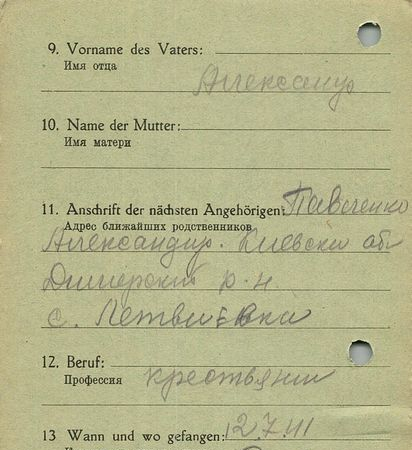 9. Vorname des Vaters:
Имя отца
Александр
10. Name der Mutter:
Имя матери
11. Anschrift der nächsten Angehörigen: Павленко
Адрес ближайших родственников
Александр. Киевски об
Дымерский р-н
с. Летвиевка
12. Beruf:
Профессия крестьянин
13 Wann und wo gefangen: 12.7.41